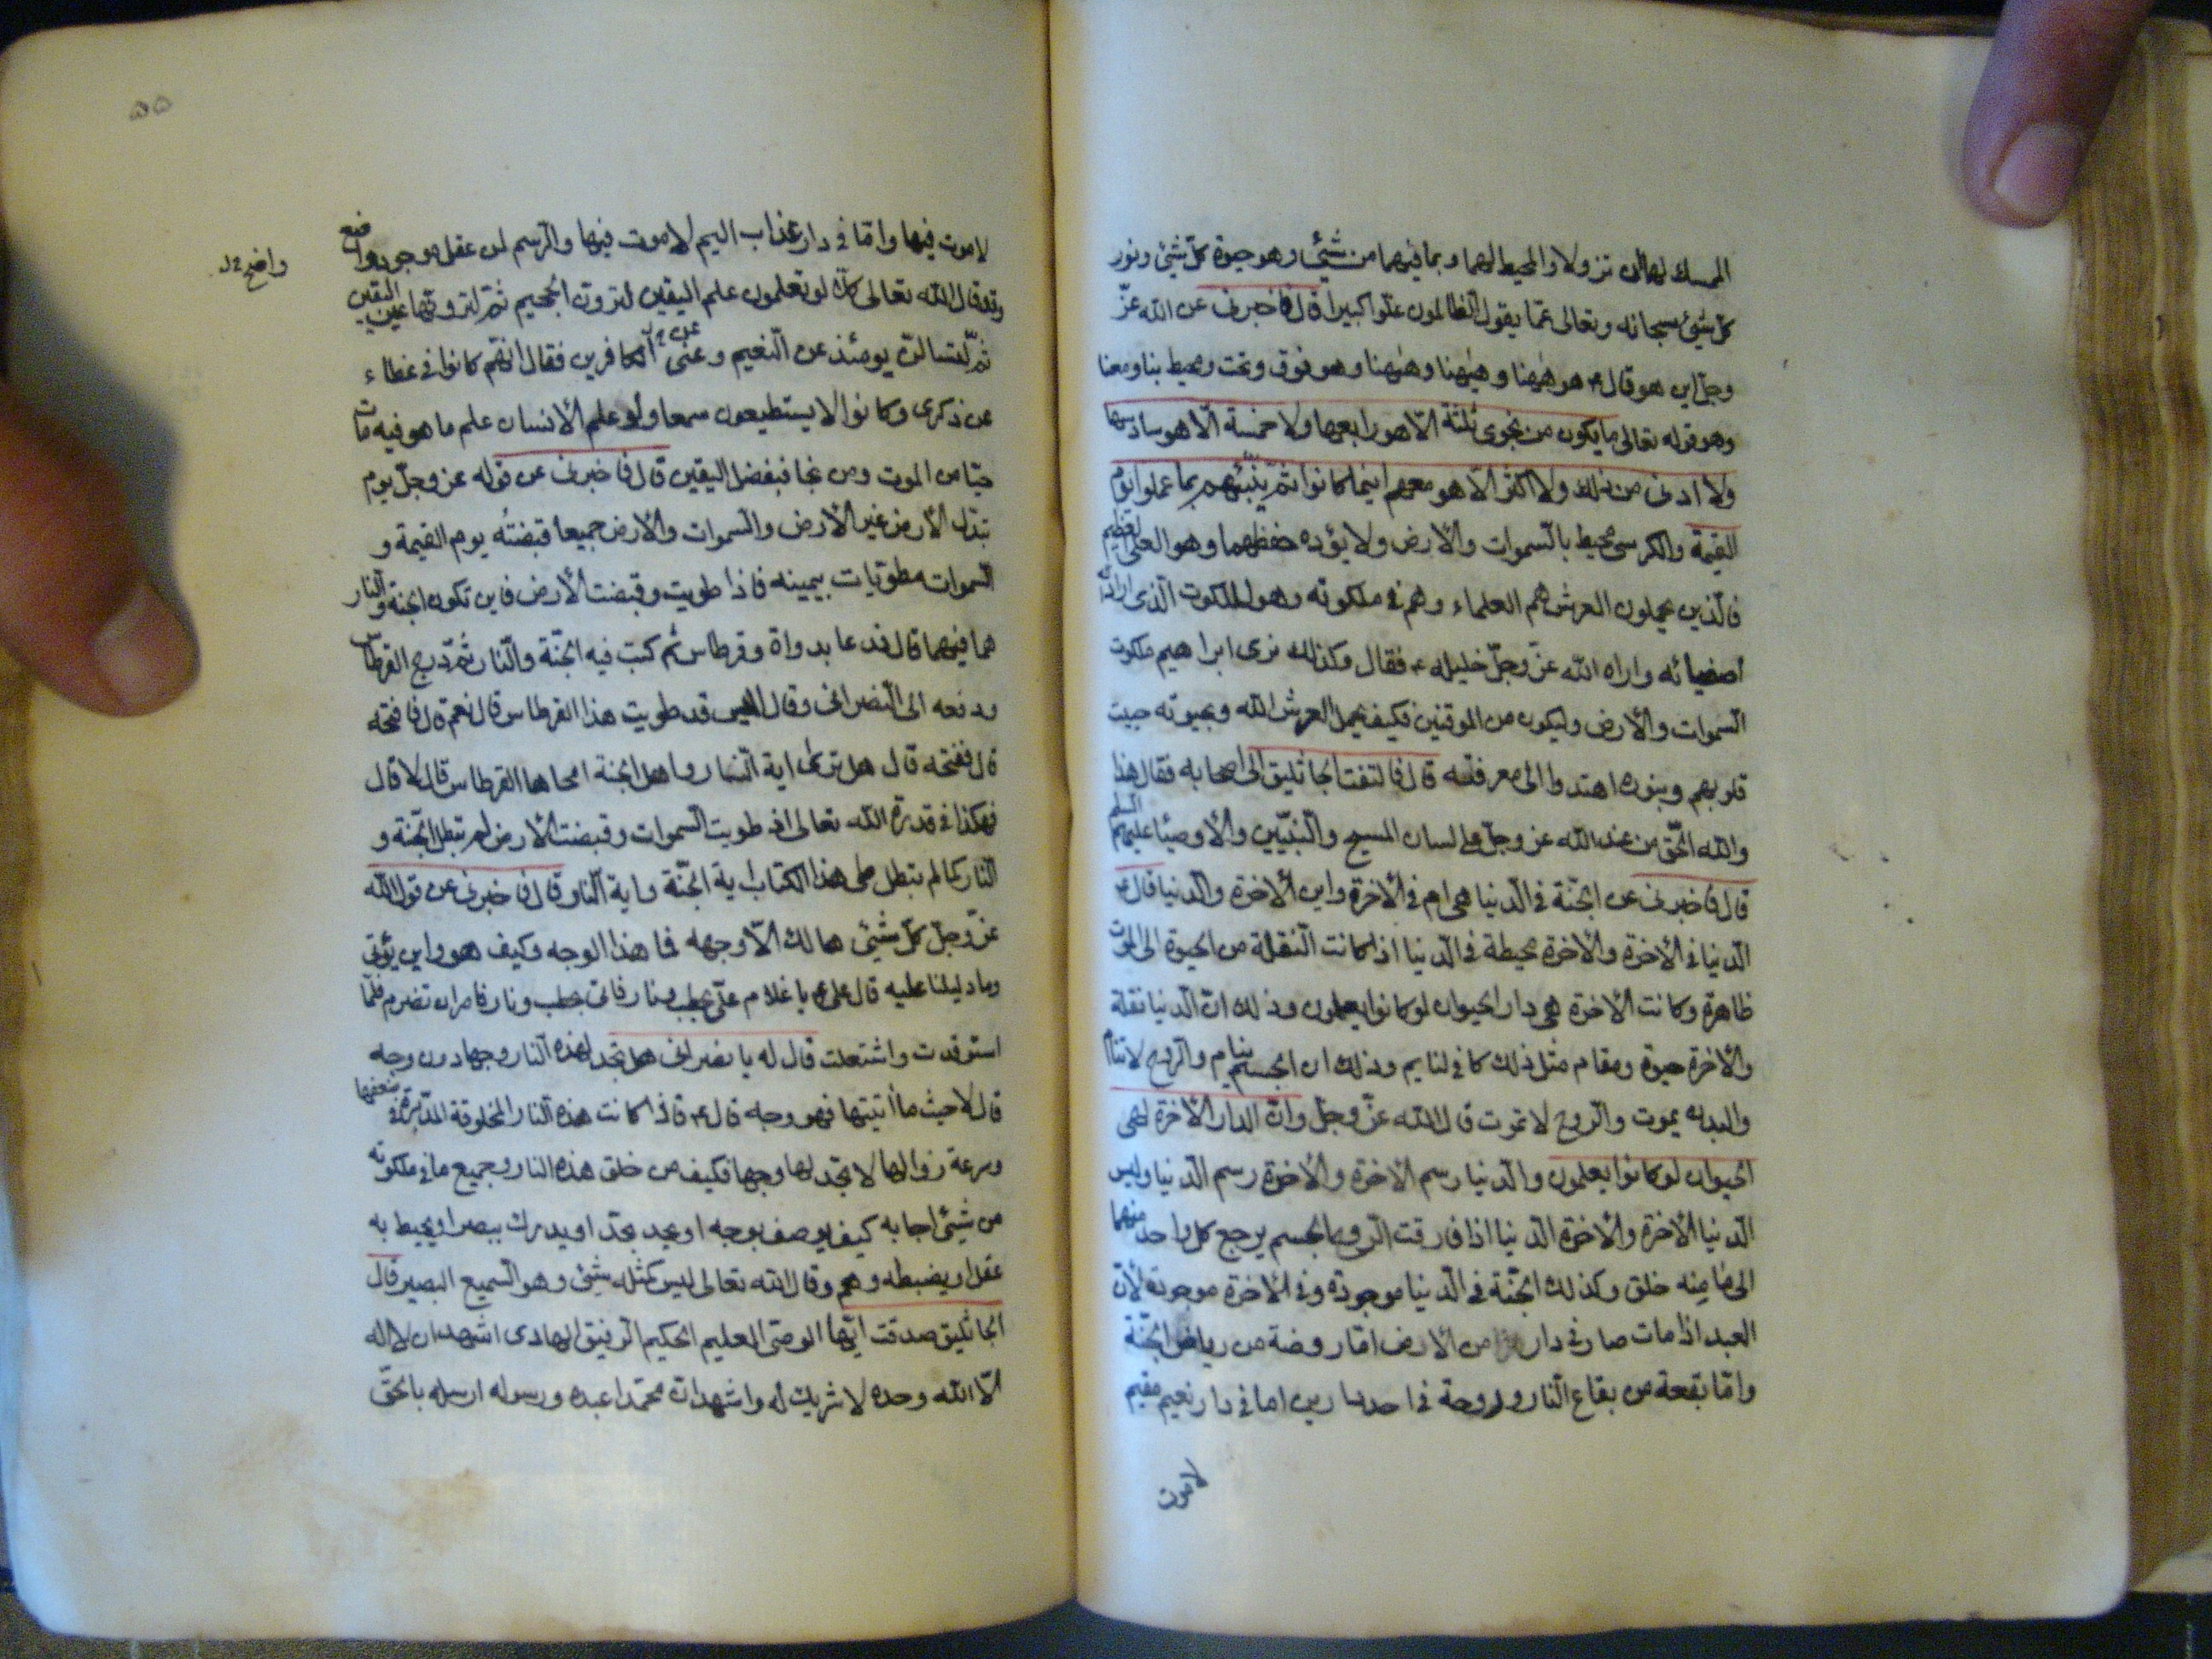 الممسك لهما ان تزولا والمحيط لهما وبما فيهما من شيئ وهو حيوة كلّ شيئ ونور
كلّ شيئ سبحانه وتعالى عمّا يقول الظالمون علوّا كبيرا قال فاخبرني عن الله عزّ
وجلّ اين هو قال ۴ هو هيهنا وهيهنا وهيهنا وهو فوق وتحت ومحيط بنا ومعنا
وهو قوله تعالى ما يكون من نجوى ثلثة الّا هو رابعهم ولا خمسة الّا هو سادسهم
ولا ادنى من ذلك ولا اكثر الّا هو معهم اينما كانوا ثمّ ينبّئهم بما عملوا يوم
القيمة والكرسي محيط بالسّموات والأرض ولا يؤده حفظهما وهو العلي العظيم
فالّذين يحملون العرش هم العلماء وهم في ملكوته وهو الملكوت الّذى اراه الله
أصفيائه واراه الله عزّ وجلّ خليله ۴ فقال وكذلك نرى ابراهيم ملكوت
السّموات والأرض وليكون من الموقنين فكيف يحمل العرش الله وبحيوته حييت
قلوبهم وبنوره اهتدوا الى معرفته قال فالتفت الجاثليق الى اصحابه فقال هذا
والله الحّق من عند الله عز وجلّ على لسان المسيح والنّبيّين والأوصياء عليهم السلم
قال فاخبرنى عن الجنّة في الّدنيا هى ام في الأخرة واين الأخرة والّدنيا قال ۴
الّدنيا في الأخرة والأخرة محيطة في الّدنيا اذا كانت النّقلة من الحيوة الى الموت
ظاهرة وكانت الأخرة هي دار الحيوان لو كانوا يعلمون وذلك انّ الّدنيا نقلة
والأخرة حيوة ومقام مثل ذلك كا في لنايم وذلك ان الجسم ينام والرّوح لا تنام
والبدن يموت والرّوح لا تموت قال الله عزّ وجلّ وانّ الدار الأخرة لهى
الحيوان لو كانوا يعلمون والّدنيا رسم الأخرة والأخرة رسم الّدنيا وليس
الّدنيا الأخرة والأخرة الّدنيا اذا فارقت الّروح الجسم يرجع كل واحد منهما
الى ما منه خلق وكذلك الجنّة في الّدنيا موجودة وفي الأخرة موجودة لأنّ
العبد اذا مات صار في دار من الأرض امّا روضة من رياض الجنّة
وامّا بقعة من بقاع النّار وروحة في احد دارين اما في دار نعيم مقيم
لا موت
۵۵
لا موت فيها وامّا في دار عذاب اليم لا موت فيها والّرسم لمن عقل موجود واضع
واضح خ ل
وقد قال الله تعالى كلّا لو تعلمون علم اليقين لترونّ الجحيم ثمّ لترونّها عين اليقين
ثمّ لتسئلنّ يومئذ عن النّعيم وعنى عن الكافرين فقال انّهم كانوا في غطاء
عن ذكرى وكانوا لا يستطيعون سمعا ولو علم الأنسان علم ما هو فيه مات
حبّا من الموت ومن نجا فبفضل اليقين قال فاخبرنى عن قوله عز وجلّ يوم
تبدّل الأرض غير الأرض والسّموات والأرض جميعا قبضتُه يوم القيمة و
السّموات مطويّات بيمينه فاذا طويت وقبضت الأرض فاين تكون الجنة والنّار
هما فيهما قال فدعا بدواة وقرطاس ثم كتب فيه الجنّة والنّار ثمّ درج القرطاس
ودفعه الى النّصرانى وقال اليس قد طويت هذا القرطاس قال نعم قال فافتحه
قال ففتحه قال هل ترى اية النّار واهل الجنة امحاها القرطاس قال لا قال
فهكذا في قدرة الله تعالى اذ طويت السّموات وقبضت الأرض لم تبطل الجّنة و
النّار كما لم تبطل طى هذا الكتاب اية الجنّة واية النّار قال فاخبرنى عن قول الله
عزّ وجلّ كلّ شيئ هالك الّا وجهه فما هذا الوجه وكيف هو واين يؤتى
وما دليلنا عليه قال على ۴ يا غلام علىّ بحطب ونار فاتى بحطب ونار فامر ان تضرم فلمّا
استوقدت واشتعلت قال له يا نصرانى هل تجد لهذه النّار وجها دون وجه
قال لا حيث ما أتيتها فهو وجه قال ۴ فاذا كانت هذه النّار المخلوقة المدّبرة في ضعفها
وسرعة زوالها لا تجد لها وجها فكيف من خلق هذه النار وجميع ما في ملكوته
من شيئ اجابه كيف يوصف بوجه او يحد بحدّ او يدرك ببصر او يحيط به
عقل او يضبطه وهم وقال الله تعالى ليس كمثله شئ وهو السّميع البصير قال
الجاثليق صدقت ايّها الوصّى العليم الحكيم الّرفيق الهادى اشهد ان لا اله
الّا الله وحده لا شريك له واشهد انّ محمّدا عبده ورسوله ارسله بالحقّ